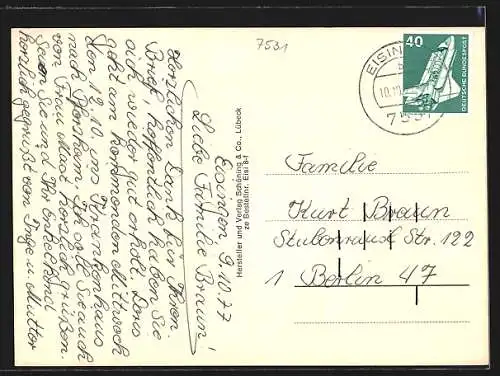 7531
EISIN
10.10
7531
40
DEUTSCHE BUNDESPOST
Eisingen, 9.10.77
Liebe Familie Braun!
Herzlichen Dank für Ihren
Brief, hoffentlich haben Sie
sich wieder gut erholt. Doris
geht am kommenden Mittwoch
den 12.10. ins Krankenhaus
nach Pforzheim. Ich soll Sie auch
von Frau Mast herzlich grüßen.
Seien Sie und Ihr Enkelkind
herzlich gegrüßt von Inge u. Mutter
Hersteller und Verlag Schöning & Co., Lübeck
ze Bestellnr. Eisi 8-f
Familie
Kurt Braun
Stubenrauch Str. 122
1 Berlin 47